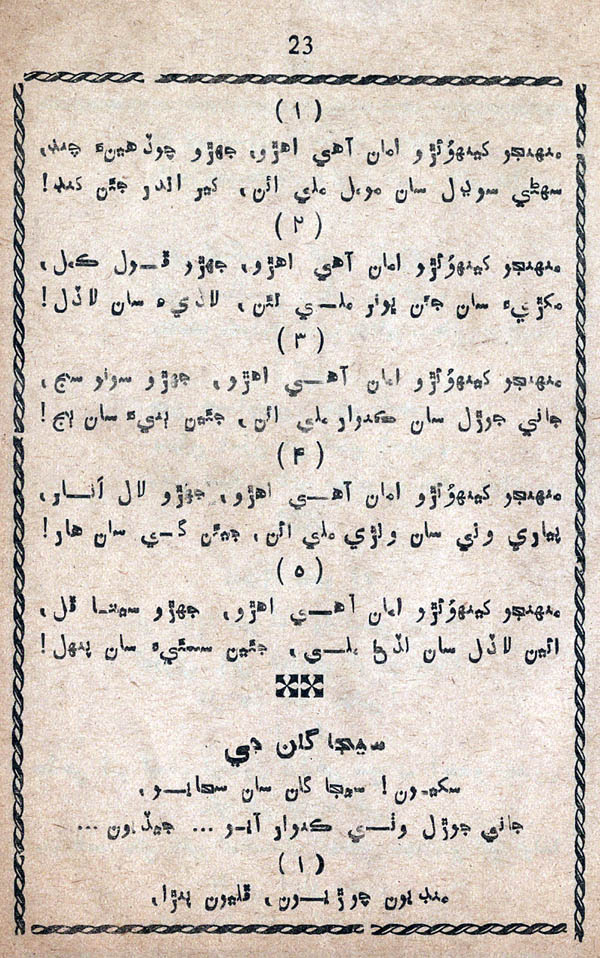 23
( ۱ )
منهنجو کينهوُنڙو امان آهي اهڙو، جهڙو چوڏهينءَ چنڊ،
سهڻي سوڍل سان مومل ملي ائن، کير اندر جئن کنڊ!
( ۲ )
منهنجو کينهوُنڙو امان آهي اهڙو، جهڙو ڦول ڪمل،
مکڙيءَ سان جئن ڀونر ملي تئن، لاڏيءَ سان لاڏل!
( ۳ )
منهنجو کينهوُنڙو امان آهي اهڙو، جهڙو سونو سج،
ڄاڃي جوڙل سان ڪنوار ملي ائن، جئين ٻنيءَ سان ٻج!
( ۴ )
منهنجو کينهوُنڙو امان آهي اهڙو، جهڙو لال انار،
پياري وني سان ونڙي ملي ائن، جيئن ڳچي سان هار!
( ۵ )
منهنجو کينهوُنڙو امان آهي اهڙو، جهڙو سيتا ڦل،
ائين لاڏل سان ملي، جئين سسئيءَ سان پنهل!
سيڄا گان جي
سکيون! سيڄا گان سان سجايو،
جوڙل وٺي ڪنوار آيو... جيڏيون...
( ۱ )
منڊيون چوڙيون، ڦليون ٻنڙا،